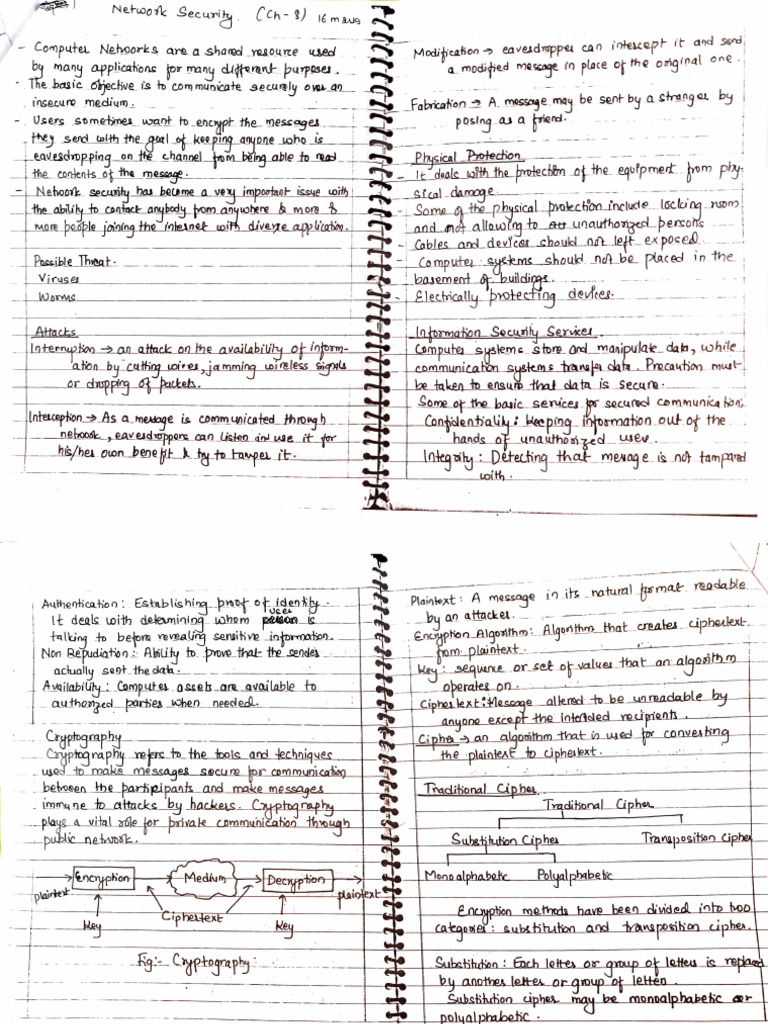 Network Security. (Ch-8) 16 marks
- Computer Networks are a shared resource used
by many applications for many different purposes.
- The basic objective is to communicate securely over an
insecure medium.
- Users sometimes want to encrypt the messages
they send with the goal of keeping anyone who is
eavesdropping on the channel from being able to read
the contents of the message.
- Network security has become a very important issue with
the ability to contact anybody from anywhere & more &
more people joining the internet with diverse application.
Possible Threat.
Viruses
Worms
Attacks
Interruption → an attack on the availability of inform-
ation by cutting wires, jamming wireless signals
or dropping of packets.
Interception → As a message is communicated through
network, eavesdroppers can listen in use it for
his/her own benefit & try to tamper it.
Modification → eavesdropper can intercept it and send
a modified message in place of the original one.
Fabrication → A message may be sent by a stranger by
posing as a friend.
Physical Protection
- It deals with the protection of the equipment from phy-
sical damage.
- Some of the physical protection include locking room
and not allowing to unauthorized persons
- Cables and devices should not left exposed.
- Computer systems should not be placed in the
basement of buildings.
- Electrically protecting devices.
Information Security Services.
Computer systems store and manipulate data, while
communication systems transfer data. Precaution must
be taken to ensure that data is secure.
Some of the basic services for secured communication:
Confidentiality: keeping information out of the
hands of unauthorized user.
Integrity: Detecting that message is not tampared
with.
Authentication: Establishing proof of identity.
It deals with determining whom user is
talking to before revealing sensitive information.
Non Repudiation: Ability to prove that the sender
actually sent the data.
Availability: Computer assets are available to
authorized parties when needed.
Cryptography
Cryptography refers to the tools and techniques
used to make messages secure for communication
between the participants and make messages
immune to attacks by hackers. Cryptography
plays a vital role for private communication through
public network.
Encryption Medium Decryption
plaintext plaintext
Ciphertext
Key Key
Fig:- Cryptography:
Plaintext: A message in its natural format readable
by an attacker.
Encryption Algorithm: Algorithm that creates ciphertext
from plaintext.
Key: sequence or set of values that an algorithm
operates on.
Ciphertext: Message altered to be unreadable by
anyone except the intended recipients.
Cipher → an algorithm that is used for converting
the plaintext to ciphertext.
Traditional Cipher
Traditional Cipher
Substitution Cipher Transposition Cipher
Monoalphabetic Polyalphabetic
Encryption methods have been divided into two
categories: substitution and transposition cipher.
Substitution: Each letter or group of letters is replaced
by another letter or group of letter.
Substitution cipher may be monoalphabetic or
polyalphabetic.